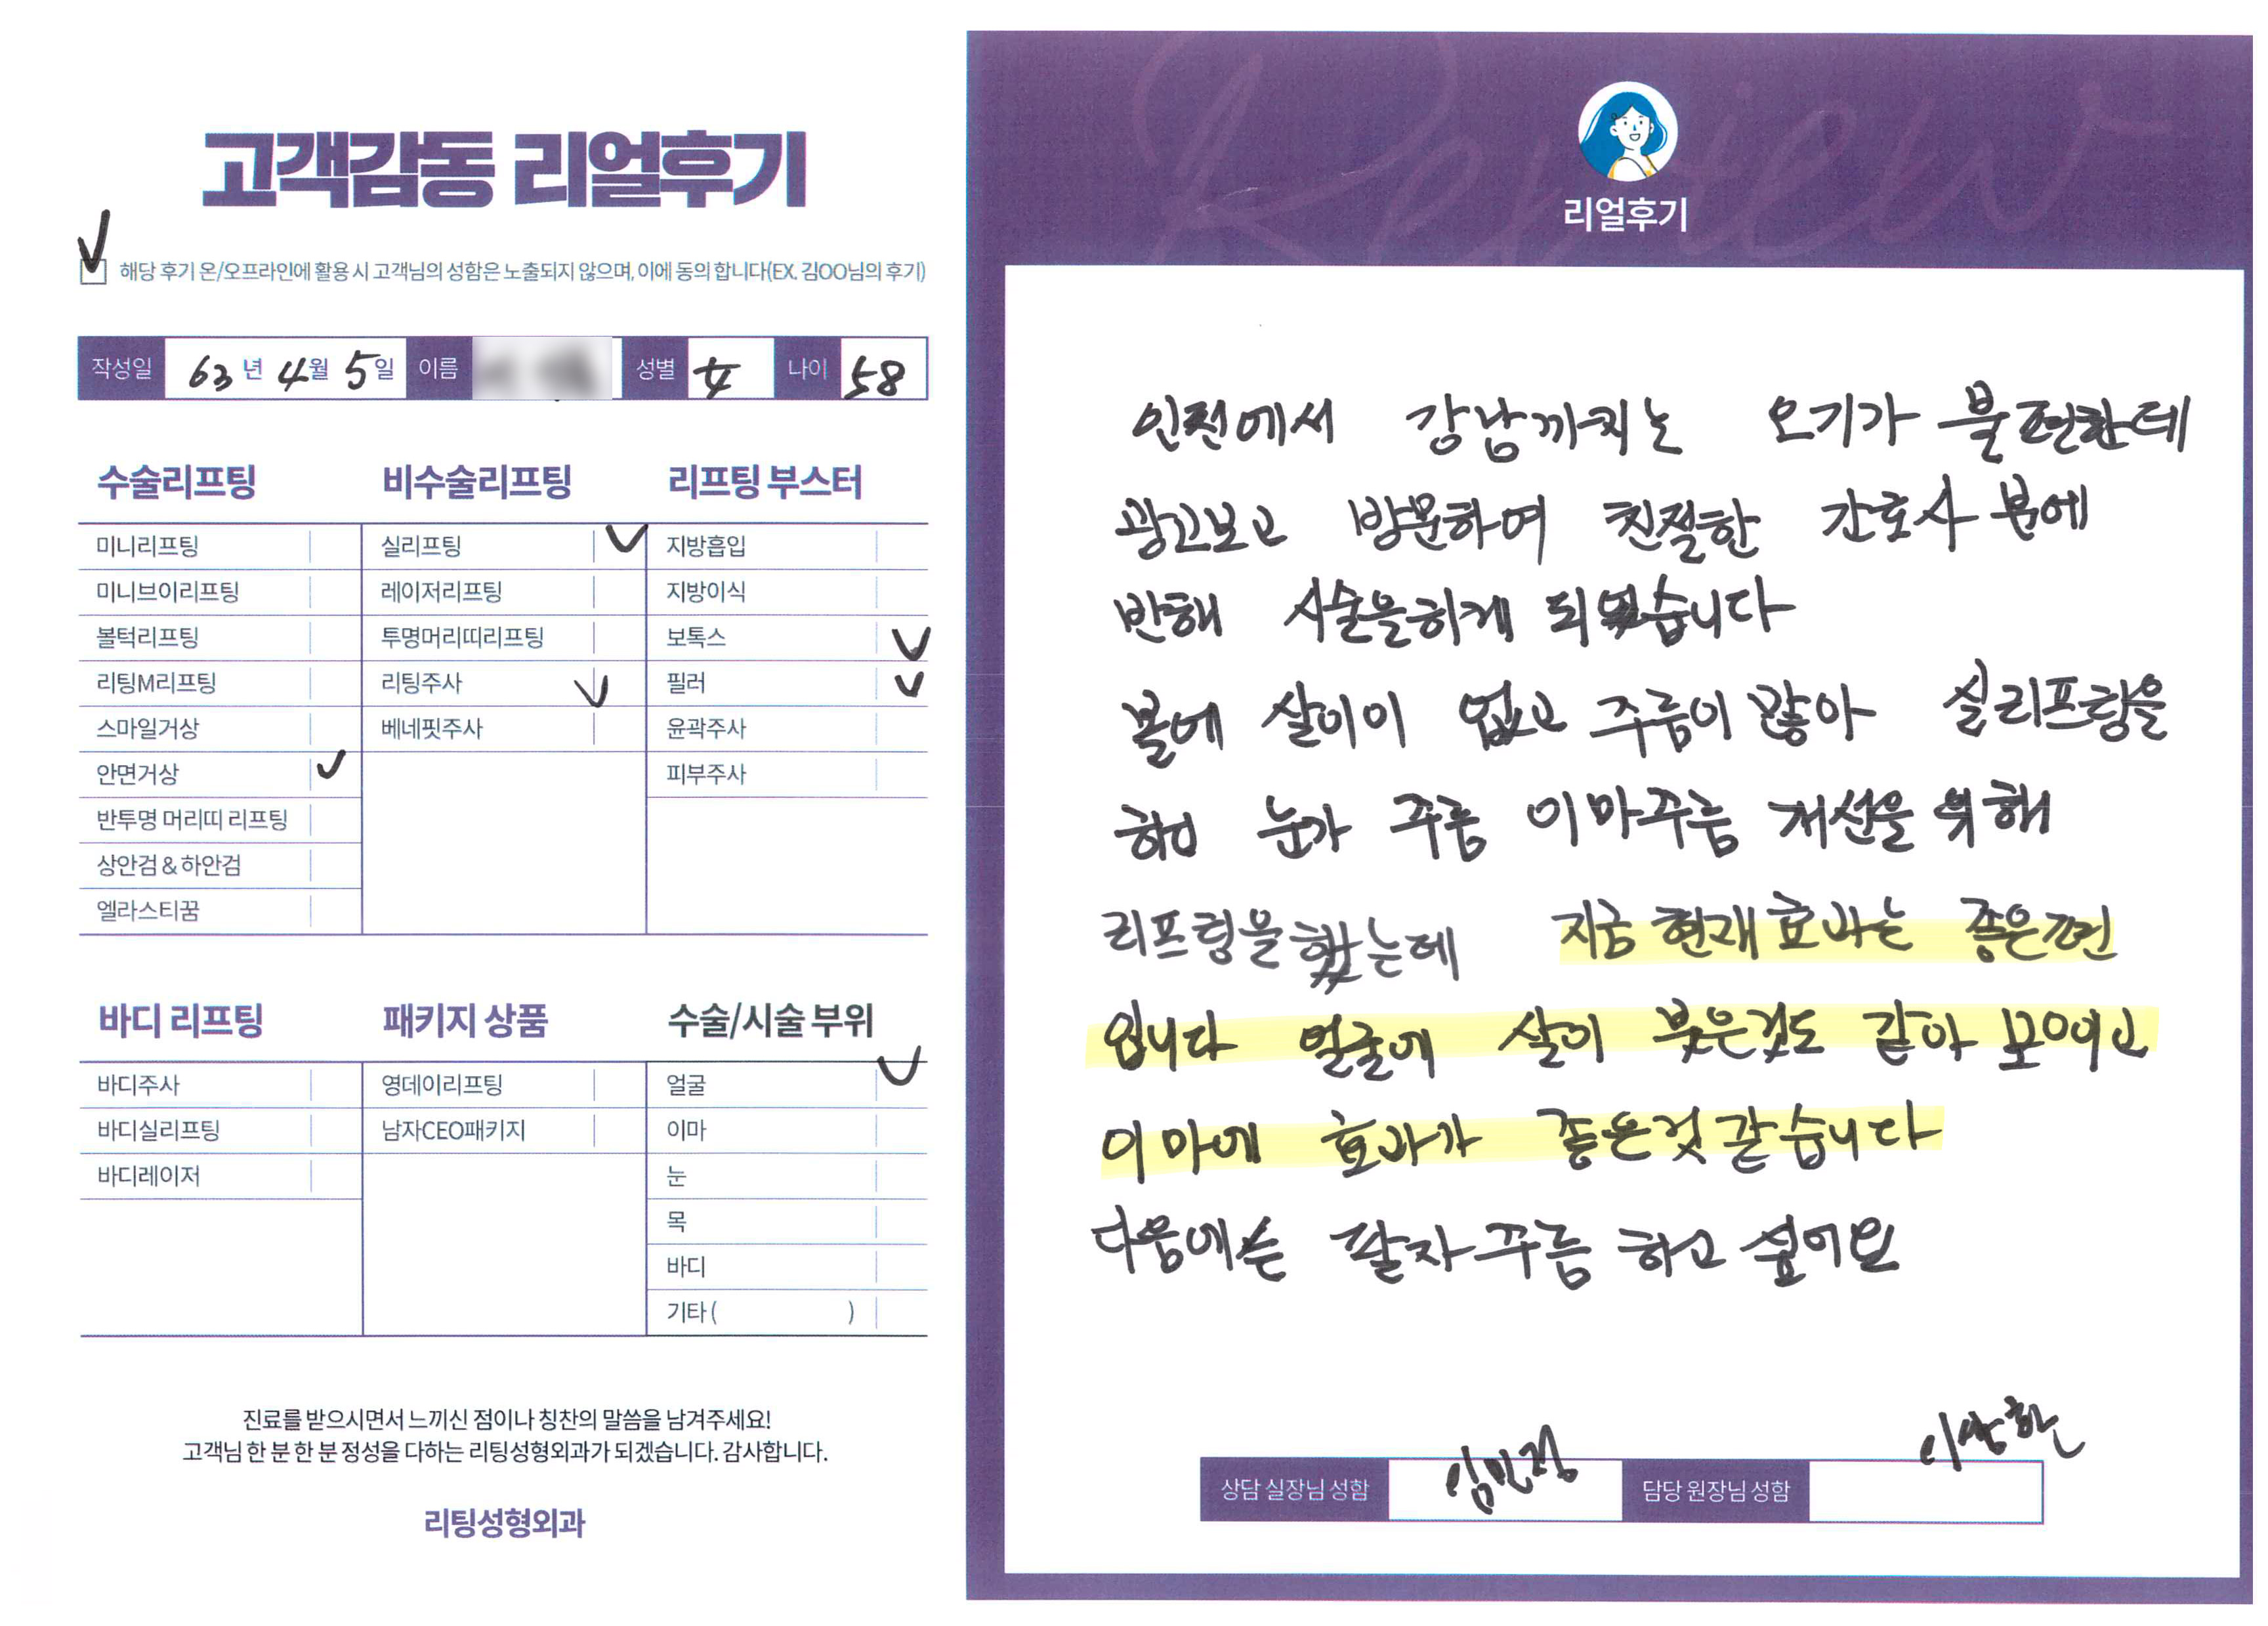 고객감동 리얼후기
해당 후기 온/오프라인에 활용 시 고객님의 성함은 노출되지 않으며, 이에 동의 합니다(EX. 김OO님의 후기)
작성일 63년 4월 5일 이름 성별 女 나이 58
수술리프팅
미니리프팅
미니브이리프팅
볼턱리프팅
리팅M리프팅
스마일거상
안면거상
반투명 머리띠 리프팅
상안검 & 하안검
엘라스티꿈
비수술리프팅
실리프팅
레이저리프팅
투명머리띠리프팅
리팅주사
베네핏주사
리프팅 부스터
지방흡입
지방이식
보톡스
필러
윤곽주사
피부주사
바디 리프팅
바디주사
바디실리프팅
바디레이저
패키지 상품
영데이리프팅
남자CEO패키지
수술/시술 부위
얼굴
이마
눈
목
바디
기타 ( )
진료를 받으시면서 느끼신 점이나 칭찬의 말씀을 남겨주세요!
고객님 한 분 한 분 정성을 다하는 리팅성형외과가 되겠습니다. 감사합니다.
리팅성형외과
Review
리얼후기
인천에서 강남까지는 오기가 불편한데
광고보고 방문하여 친절한 간호사 분에
반해 시술을하게 되었습니다
볼에 살이이 없고 주름이 많아 실리프팅을
하고 눈가 주름 이마주름 개선을 위해
리프팅을 했는데 지금 현재 효과는 좋은편
입니다 얼굴에 살이 붙은것도 같아 보이고
이마에 효과가 좋은것 같습니다
다음에는 팔자주름 하고 싶어요
상담 실장님 성함 임민정 담당 원장님 성함 이상환